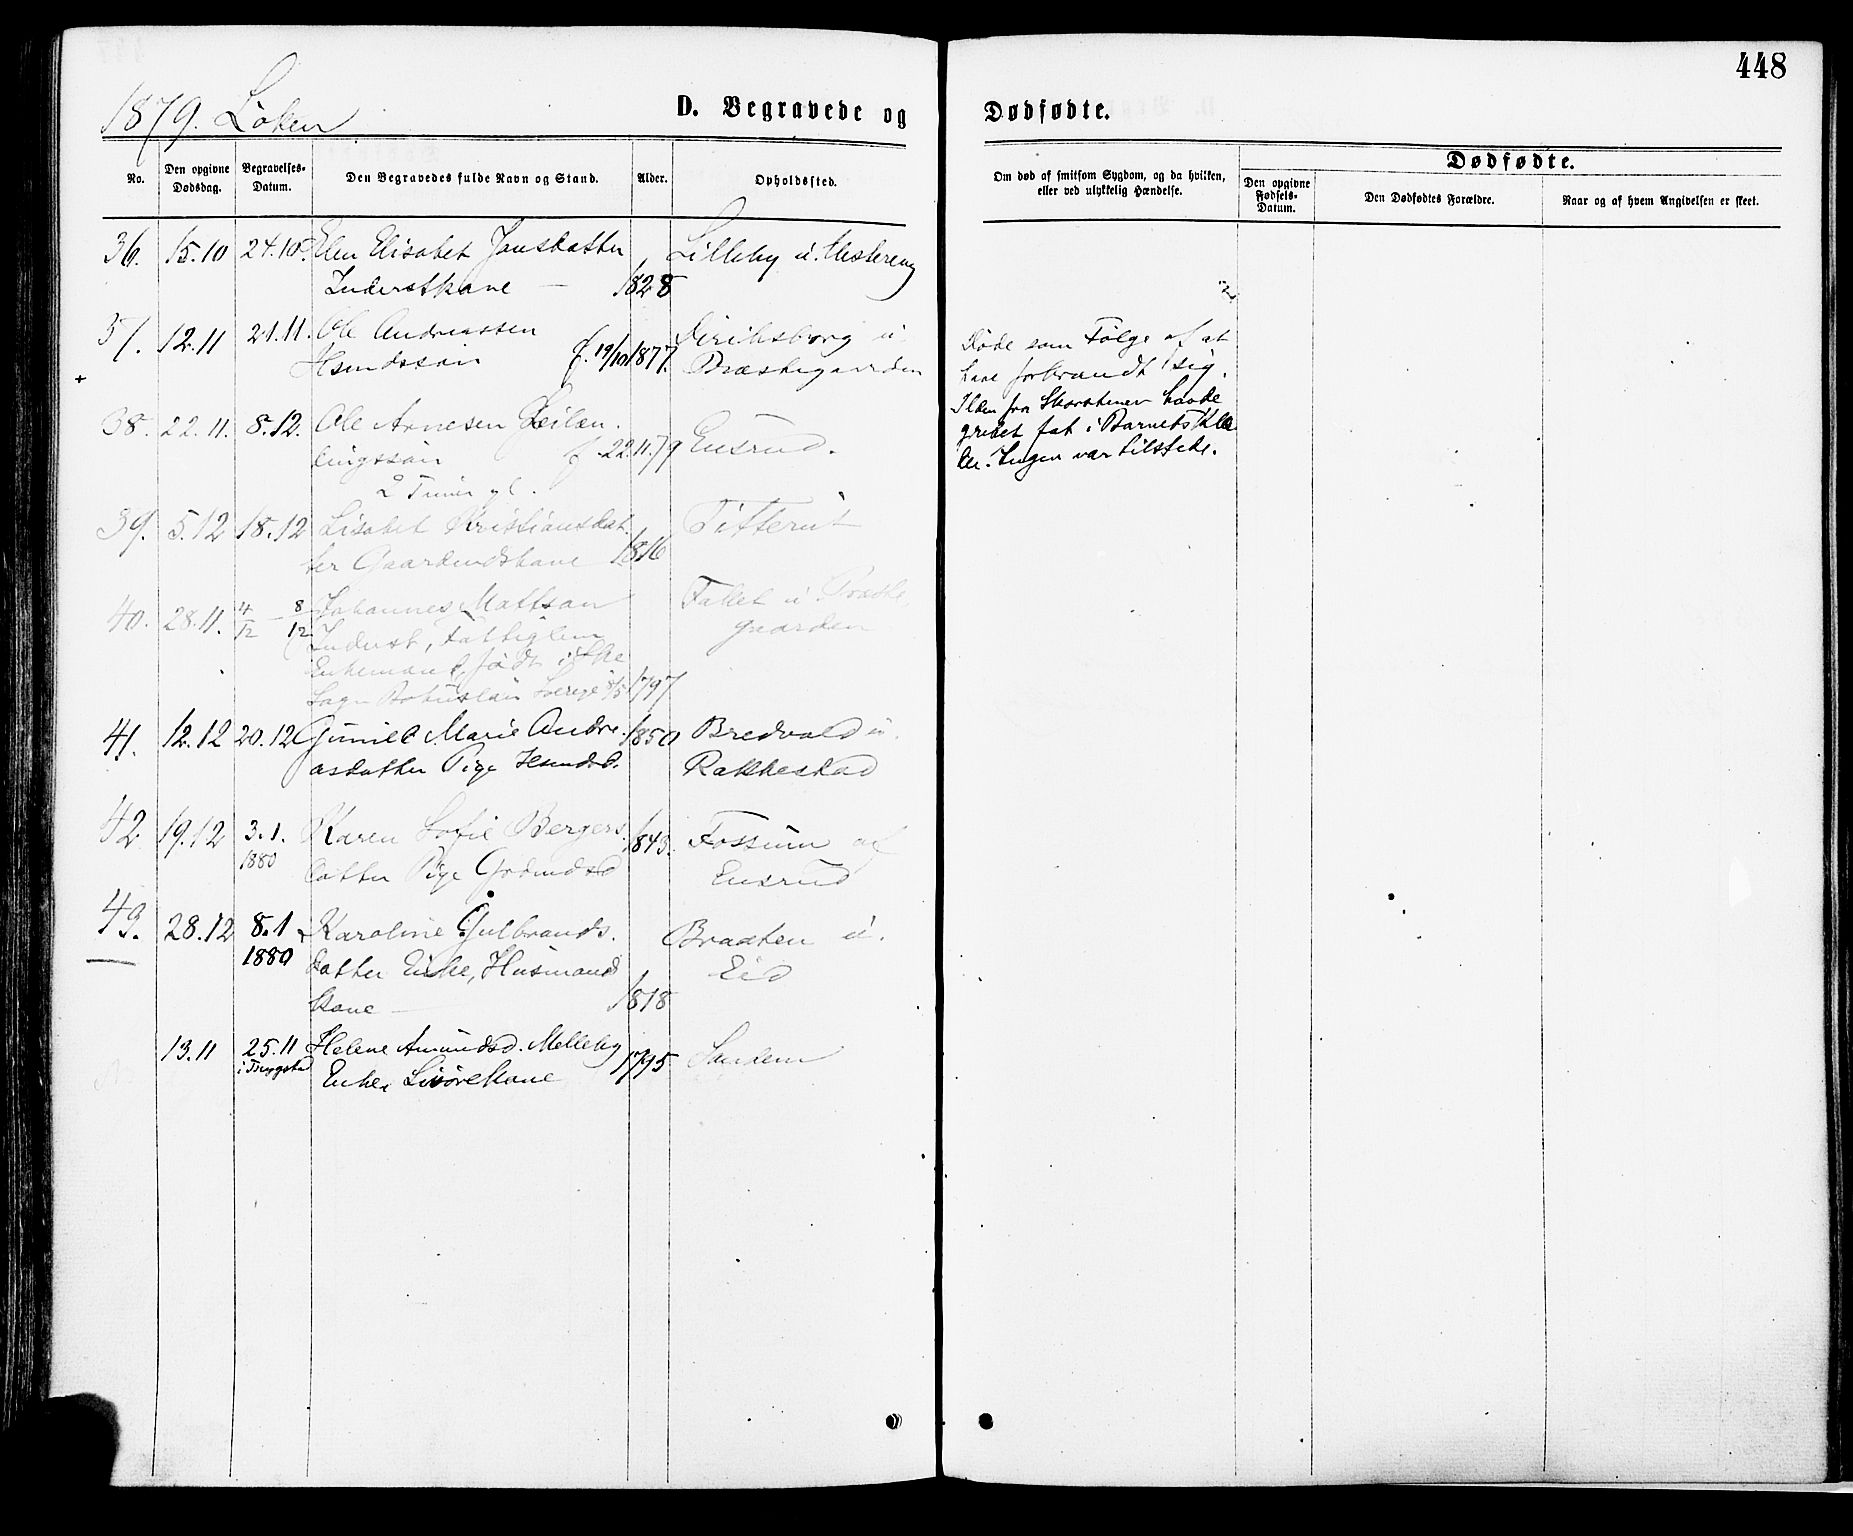 448
1879. Löken
D. Begravede og Dødfødte.
No.
Den opgivne Dødsdag.
Begravelses-Datum.
Den Begravedes fulde Navn og Stand.
Alder.
Opholdssted.
Om død af smitsom Sygdom, og da hvilken, eller ved ulykkelig Hændelse.
Dødfødte.
Den opgivne Fødsels-Datum.
Den Dødfødtes Forældre.
Naar og af hvem Angivelsen er skeet.
36. 15.10 24.10. Elen Elisabet Jansdatter Lilleby u.
Inderstkone — 1828
37. 12.11 21.11. Ole Andreassen u.
Hsmdssøn f. 19/10 1877. Præstegaarden
Døde som Følge af at
have forbrandt sig.
Ilden fra Skorstenen havde
grebet fat i Barnets Klæ
der. Ingen var tilstede.
38. 22.11. 8.12. Ole Arnesen
lingssøn f. 22.11.79 Eusrud.
2 Timer gl.
39. 5.12 18.12 Lisabet Kristiansdat
ter Gaardmdskone 1816 Titterut
40. 28.11. 4/12 – 8/12 Johannes Mattson Fallet u. Præste
Inderst, Fattiglem gaarden
Enkemand, født i
Sogn Bohuslän Sverige 1797
41. 12.12 20.12 Gunild Marie Andre. 1850 Bredvold u.
asdatter Pige Hsmdsd. Rakkestad
42 19.12 3.1. 1880 Karen Sofie Bergers 1843. Fossum af
datter Pige Grdmdsd Eusrud
43. 28.12 8.1 1880 Karoline Gulbrands. Braaten u.
datter Enke, Husmand Eid
skone — 1818
13.11 25.11 i Trygstad Helene Amundsd. Melleby 1795
Enke,